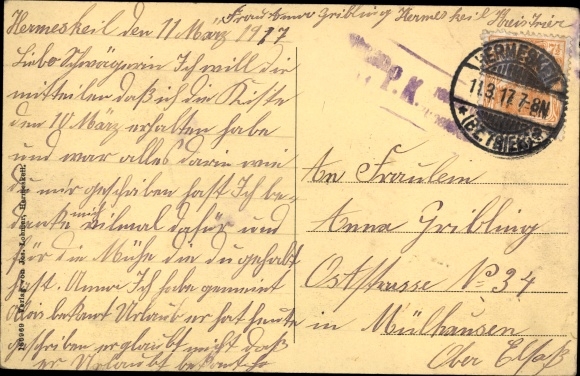 Frau Anna Gribling Hermeskeil Kreis Trier
Hermeskeil den 11 März 1917
Liebe Schwägerin Ich will dir
mitteilen daß ich die Kiste
den 10 März erhalten habe
und war alles darin wie
du mir geschrieben hast Ich be-
danke mich vilmal dafür und
für die Mühe die du gehabt
hast. Anna Ich habe gemeint
bekamt Urlaub er hat heute
geschrieben er glaubt nicht daß
er Urlaubt
P.K.
HERMESKEIL
11.3.17.7-8N
*(BZ. TRIER)*
7½
An Fräulein
Anna Gribling
Oststrasse No 34
in Mülhausen
Ober Elsaß
Verlag von Jos. Lohmer, Hermeskeil.